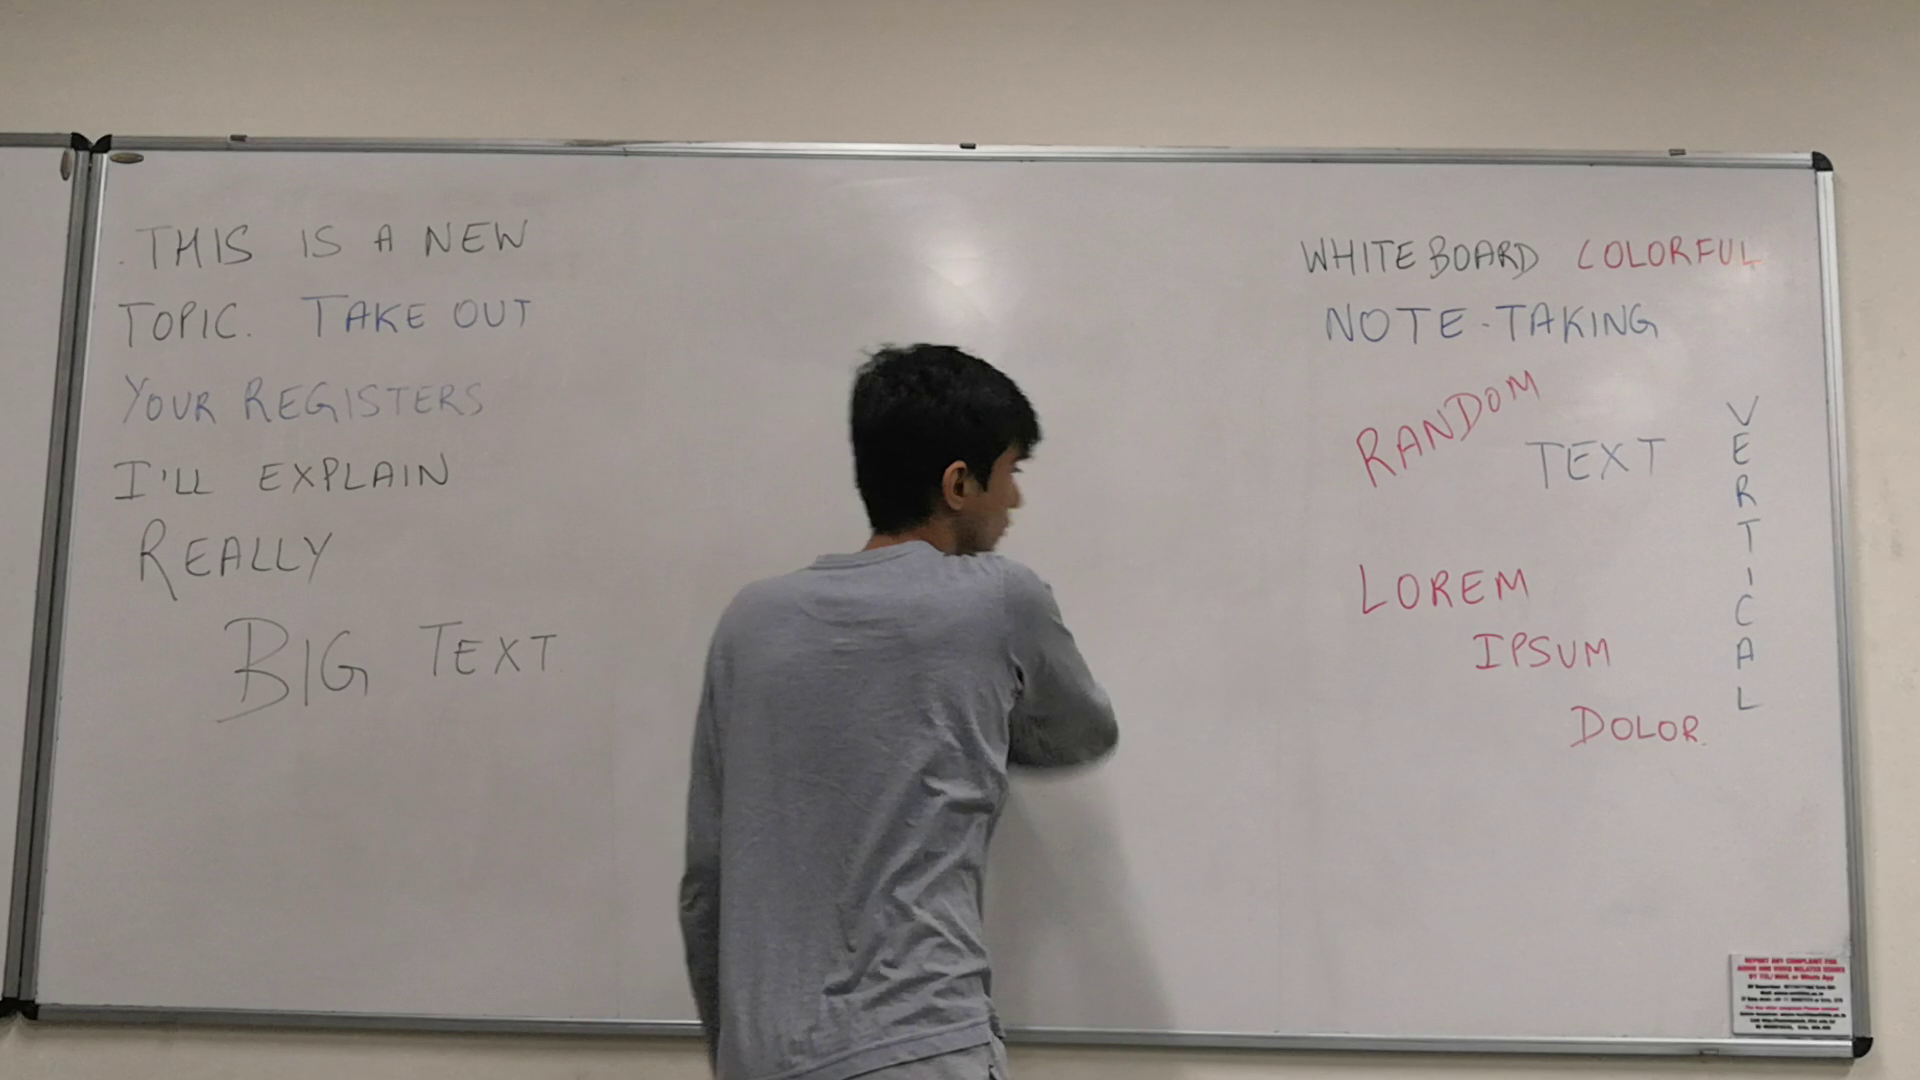 THIS IS A NEW
TOPIC. TAKE OUT
YOUR REGISTERS
I'LL EXPLAIN
REALLY
BIG TEXT
WHITEBOARD COLORFUL
NOTE-TAKING
RANDOM
TEXT
VERTICAL
LOREM
IPSUM
DOLOR
REPORT ANY COMPLAINT FOR
AUDIO AND VIDEO RELATED ISSUES
BY TEL/ MAIL or Whats App